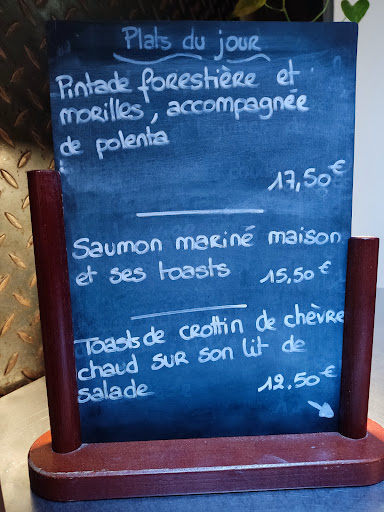 Plats du jour
Pintade forestière et
morilles, accompagnée
de polenta
17,50€
Saumon mariné maison
et ses toasts 15,50€
Toasts de crottin de chèvre
chaud sur son lit de
salade 12.50€